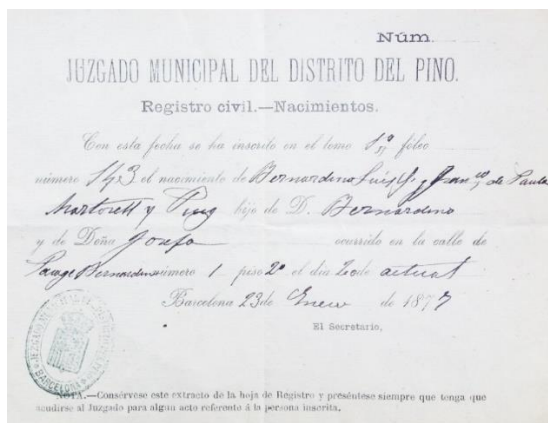 Núm.
JUZGADO MUNICIPAL DEL DISTRITO DEL PINO.
Registro civil.—Nacimientos.
Con esta fecha se ha inscrito en el tomo folio
número 143 el nacimiento de Bernardino Luis y Franco de Paula
Martorell y Puig hijo de D. Bernardino
y de Doña Josefa ocurrido en la calle de
Pasage Bernardino número 1 piso 2º el día 20 de actual
Barcelona 23 de Enero de 1877
El Secretario,
BARCELONA
NOTA.—Consérvese este extracto de la hoja de Registro y preséntese siempre que tenga que
acudirse al Juzgado para algun acto referente á la persona inscrita.